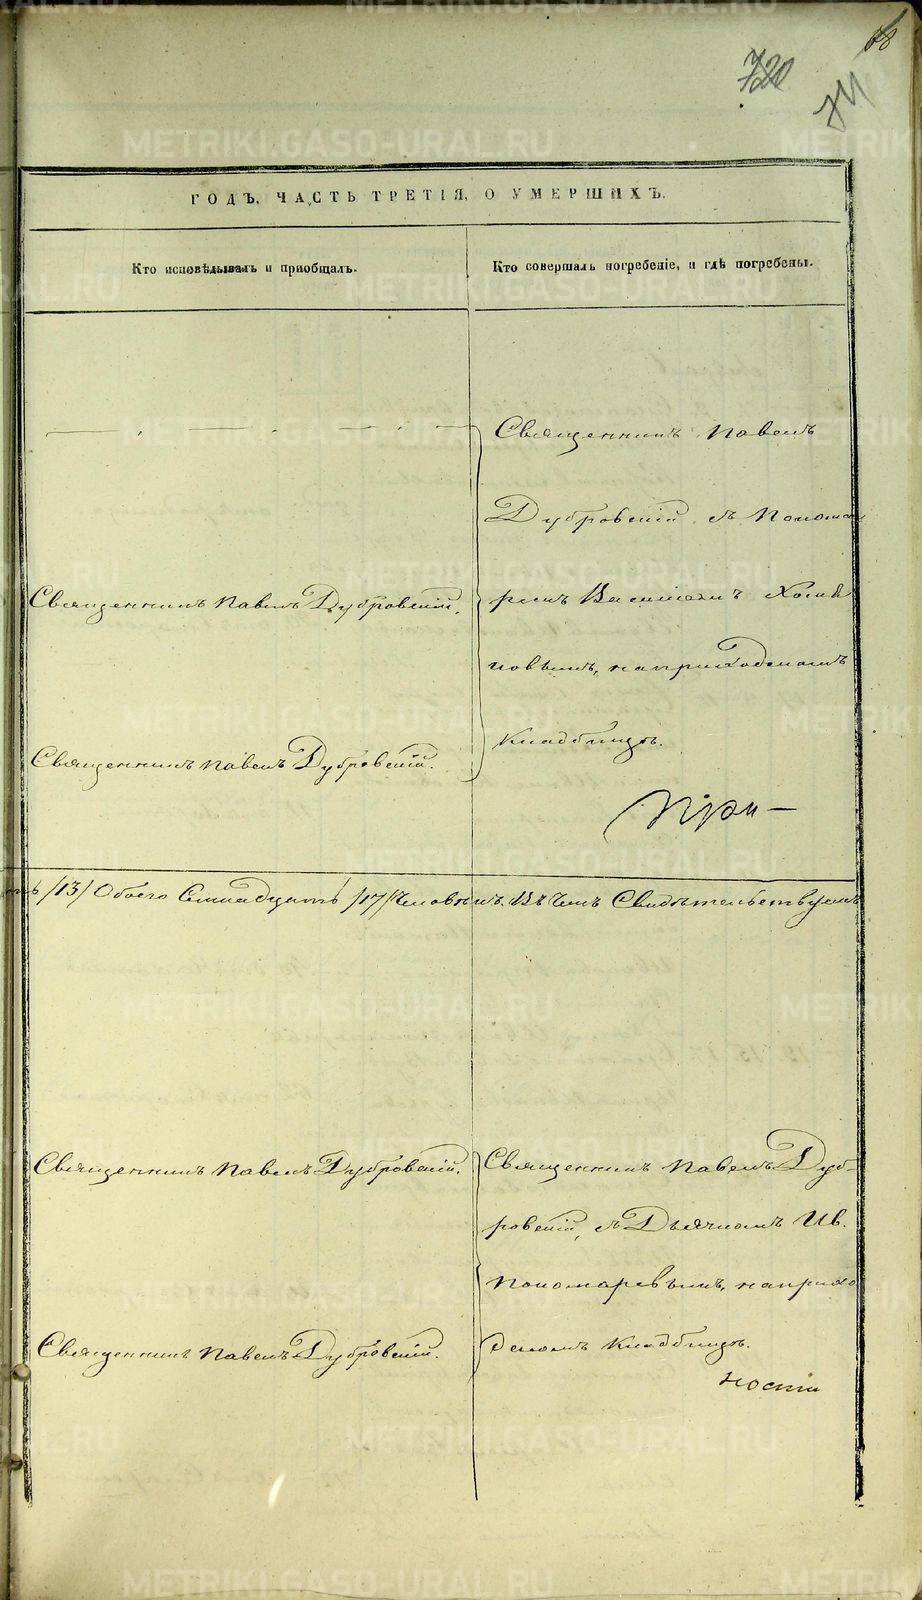 68
720
711
ГОДЪ, ЧАСТЬ ТРЕТІЯ, О УМЕРШИХЪ.
Кто исповѣдывалъ и пріобщалъ.
Кто совершалъ погребеніе, и гдѣ погребены.
Священникъ Павелъ
Дубровскій съ Понома
Священникъ Павелъ Дубровскій.
ремъ Василіемъ
новымъ, на приходскомъ
Священникъ Павелъ Дубровскій.
Кладбищѣ.
/13/ Обоего Семнадцать /17/ Человѣкъ. Въ Чемъ Свидѣтельствуемъ
Священникъ Павелъ Дубровскій.
Священникъ Павелъ Дуб-
ровскій, съ Дьячкомъ Ив.
Пономаревымъ, на прихо
Священникъ Павелъ Дубровскій.
дскомъ Кладбищѣ.
ности
METRIKI.GASO-URAL.RU